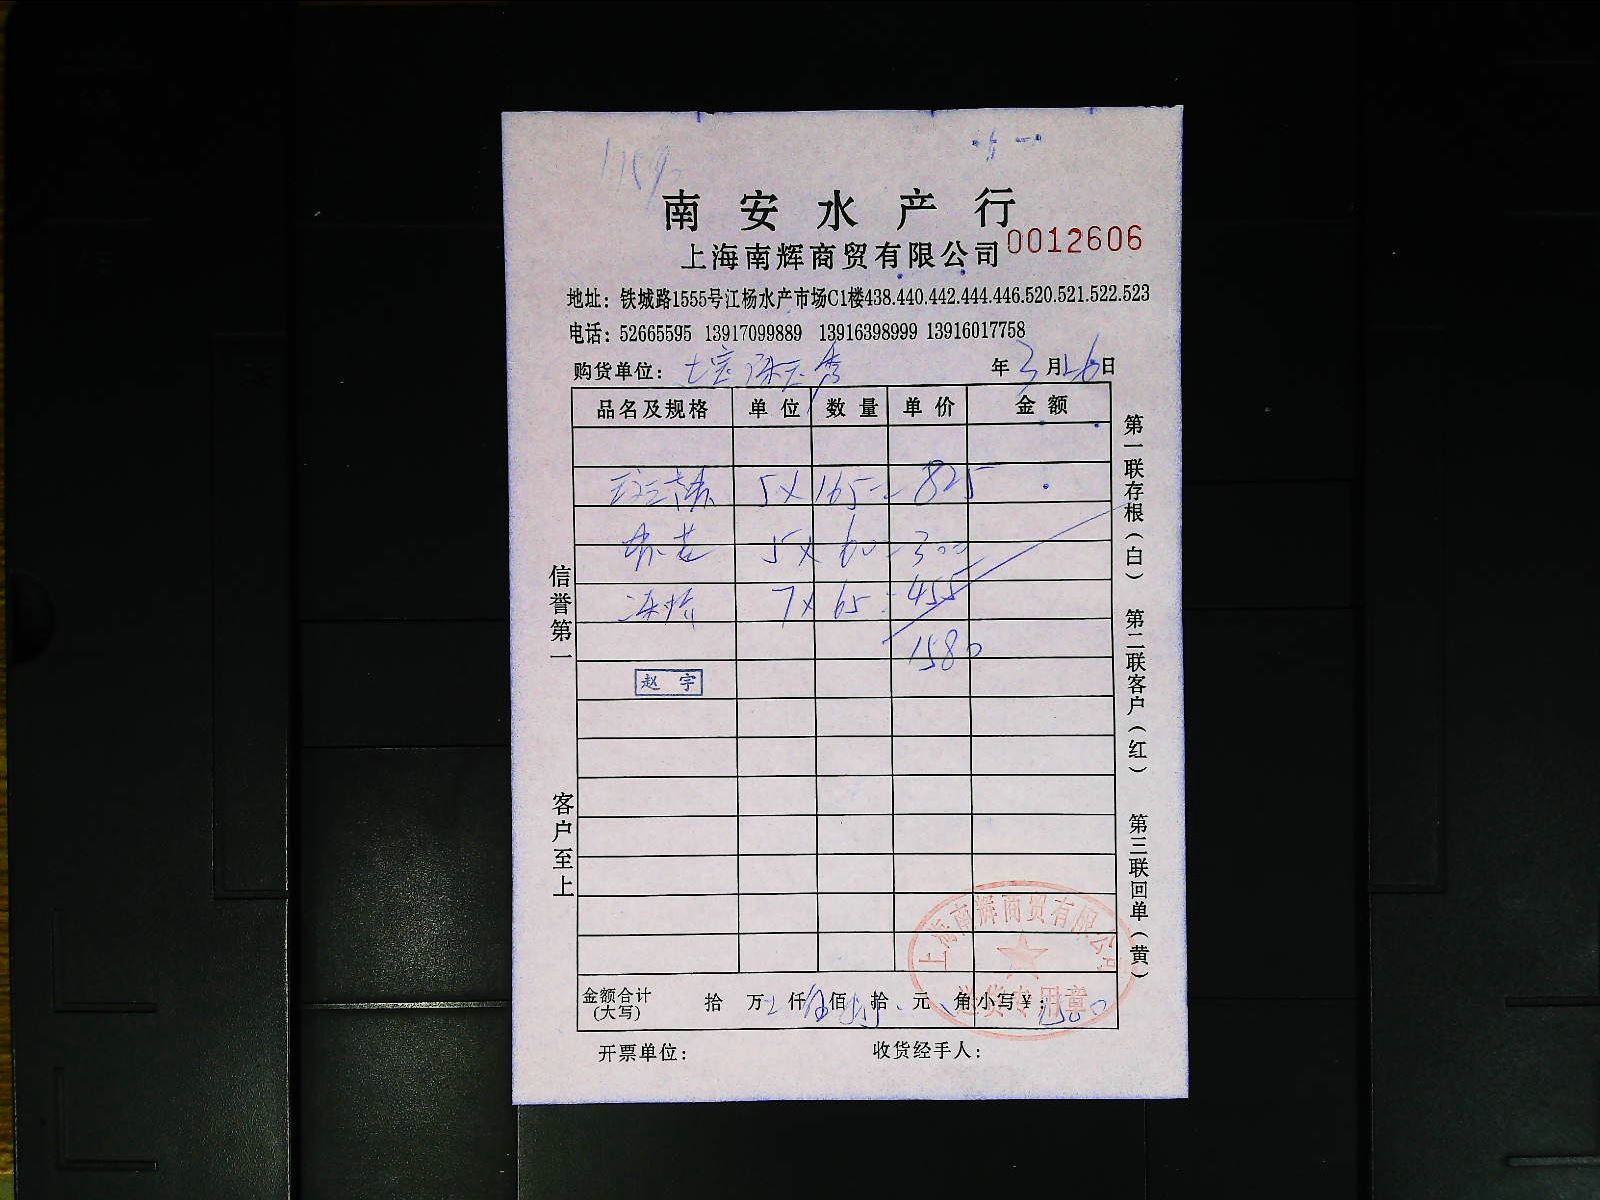 南安水产行
上海南辉商贸有限公司 0012606
地址：铁城路1555号江杨水产市场C1楼438.440.442.444.446.520.521.522.523
电话：52665595 13917099889 13916398999 13916017758
购货单位： 年3月26日
品名及规格 单位 数量 单价 金额
5×165=825
5×60=300
7×65=455
1580
赵宇
信誉第一
客户至上
第一联存根（白） 第二联客户（红） 第三联回单（黄）
上海南辉商贸有限公司
送货专用章
金额合计（大写） 拾 万 仟 佰 拾 元 角 小写￥：
开票单位： 收货经手人：